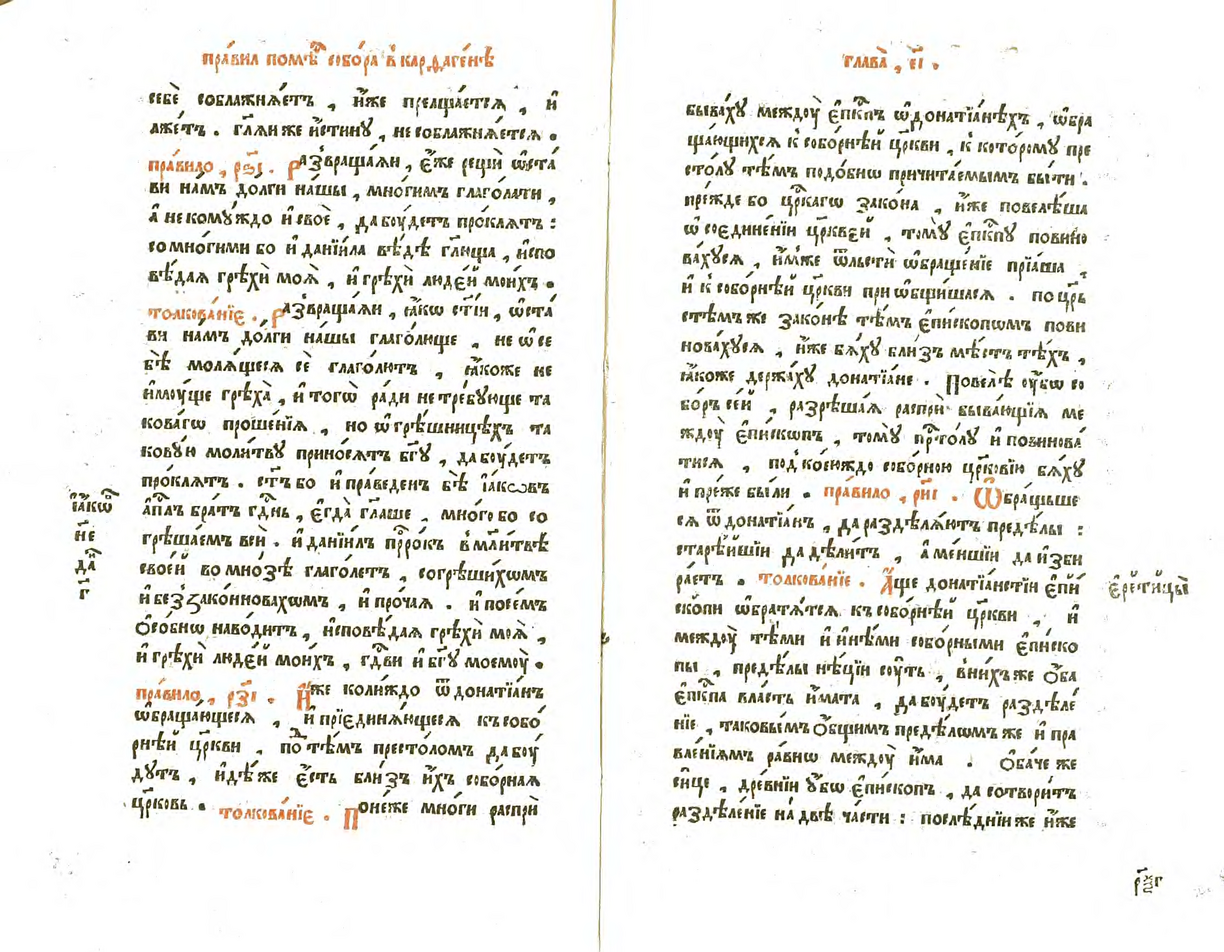 пра́вил помѣ́ⷭ҇ собо́ра в̾ кардаге́нѣ
себѐ соблажнѧ́етъ , и҆́же прелща́етсѧ , и҆
лже́тъ . гл҃ѧиже и҆́стинꙋ , несоблажнѧ́етсѧ .
пра́вило , рѕ҃і . Развраща́ѧи , є҆́же рещѝ ѡ҆ста́
ви на́мъ до́лги на́шы , мно́гимъ глаго́лати ,
а҆ некомꙋ́ждо и҆ своѐ , дабꙋ́детъ про́клѧтъ :
сомно́гими бо и҆ данїи́ла вѣ́дѣ гл҃юща , и҆спо
вѣ́даѧ грѣхѝ моѧ̀ , и҆ грѣхѝ люде́й мои́хъ .
толкова́нїе . Развраща́ѧи , ꙗ҆́кѡ ст҃і́и , ѡ҆ста́
ви на́мъ до́лги на́шы глаго́люще , не ѡ҆ се
бѣ̀ молѧ́щесѧ сѐ глаго́лютъ , ꙗ҆́коже не
и҆мꙋ́ще грѣха̀ , и҆ тогѡ̀ ра́ди нетре́бꙋюще та
кова́гѡ проше́нїѧ , но ѡ҆ грѣ́шницѣхъ та
ковꙋ́ю моли́твꙋ прино́сѧтъ бг҃ꙋ , дабꙋ́детъ
про́клѧтъ . ст҃ъ бо и҆ пра́веденъ бѣ̀ і҆а́кѡвъ
а҆пⷭ҇лъ бра́тъ гдⷭ҇нь , є҆гда̀ гл҃аше , мно́го бо со
грѣша́емъ всѝ . и҆ данїи́лъ прⷪ҇ро́къ в̾ мл҃и́твѣ
свое́й во мно́зѣ глаго́летъ , согрѣши́хѡмъ
и҆ беззако́нновахѡмъ , и҆ про́чаѧ . и҆ посе́мъ
ѻ҆со́бнѡ наво́дитъ , и҆сповѣ́даѧ грѣхѝ моѧ̀ ,
и҆ грѣхѝ люде́й мои́хъ , гдⷭ҇ви и҆ бг҃ꙋ моемꙋ̀ .
пра́вило , рз҃і . И҆́же коли́ждо ѿ донатїа́нъ
ѡ҆браща́ющеесѧ , и҆ прїединѧ́ющеесѧ къ собо́
рнѣй цр҃кви , по тѣ́мъ престо́ломъ дабꙋ́
дꙋтъ , и҆дѣ́же є҆́сть бли́зъ и҆́хъ собо́рнаѧ
цр҃ковь . толкова́нїе . Поне́же мно́ги ра́спри
і҆а́кѡⷡ҇
н҃е
да́ⷩ҇
г҃
глава̀ , є҃і .
быва́хꙋ междꙋ̀ є҆пⷭ҇кпъ ѡ҆ донатїа́нѣхъ , ѡ҆бра
ща́ющихсѧ к собо́рнѣй цр҃кви , к кото́ромꙋ пре
сто́лꙋ тѣ́мъ подо́бнѡ причита́емымъ бы́ти .
пре́жде бо цр҃кагѡ зако́на , и҆́же повелѣ́ша
ѡ҆ соедине́нїи цр҃кве́й , томꙋ̀ є҆пⷭ҇кпꙋ повинѡ
ва́хꙋсѧ , и҆́мже ѿ льсти́ ѡ҆браще́нїе прїа́ша ,
и҆ к собо́рнѣй цр҃кви приѡбщи́шасѧ . по цр҃ь
стѣ́мъже зако́нѣ тѣ́мъ є҆пи́скопѡмъ пови
нова́хꙋсѧ , и҆́же бѧ́хꙋ бли́зъ мѣ́стъ тѣ́хъ ,
ꙗ҆́коже держа́хꙋ донатїа́не . Повелѣ̀ ᲂу҆́бѡ со
бо́ръ се́й , разрѣша́ѧ ра́спри быва́ющїѧ ме
ждꙋ̀ є҆пи́скѡпъ , томꙋ̀ прⷭ҇то́лꙋ и҆ повинова́
тисѧ , под̾ кое́юждо собо́рною цр҃ковїю бѧ́хꙋ
и҆ пре́же бы́ли . пра́вило , ри҃і . Ѡ҆бра́щьше
сѧ ѿ донатїа́нъ , да раздѣлѧ́ютъ предѣ́лы :
старѣ́йшїи да дѣ́литъ , а҆ ме́ншїи да и҆зби
ра́етъ . толкова́нїе . А҆́ще донатїа́нстїи є҆пи́
скопи ѡ҆братѧ́тсѧ къ собо́рнѣй цр҃кви , и҆
междꙋ̀ тѣ́ми и҆ и҆нѣ́ми собо́рными є҆пи́ско
пы , предѣ́лы нѣ́цїи сꙋ́ть , в̾ ни́хъже ѻ҆́ба
є҆пⷭ҇кпа вла́сть и҆́мата , да бꙋ́детъ раздѣле́
нїе , таковы́мъ ѻ҆́бщимъ предѣ́лѡмъ же и҆ пра
вле́нїѧмъ ра́внѡ междꙋ̀ и҆́ма . Ѻ҆ба́че же
си́це , дре́внїи ᲂу҆́бѡ є҆пи́скопъ , да сотвори́тъ
раздѣле́нїе на́двѣ ча́сти : послѣ́днїиже и҆́же
є҆ре́тицы̀
рл҃г